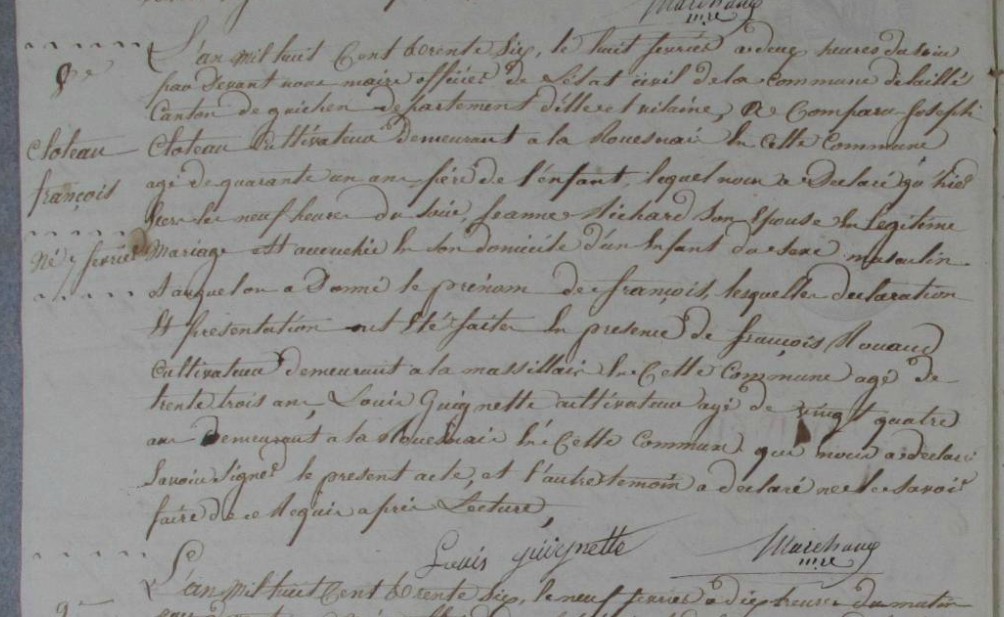 Marchand
mre
L'an mil huit Cent trente Six, le huit fevrier a deux heures du soir
8e
par Devant nous maire officier de l'état civil de la Commune de laillé
Canton de guichen departement d'ille et vilaine, a Comparu Joseph
Cloteau
Cloteau Cultivateur demeurant a la Rouesnais En Cette Commune
françois
agé de quarante un an père de l'enfant, lequel nous a Déclaré qu'hier
sur les neuf heure du soir, Jeanne Richard Son Epouse En Legitime
Né 7 fevrier
Mariage Est accouchée En son domicile d'un Enfant du Sexe masculin
auquel on a Donné le prénom de françois, lesquelles declaration
Et présentation ont Eté faites En presence de françois Rouaud
Cultivateur demeurant a la massillais En Cette Commune agé de
trente trois an, Louis Guignette cultivateur agé de vingt quatre
an Demeurant a la Rouesnais En Cette Commune qui nous a declaré
Savoir Signer le present acte, et l'autre temoin a declaré ne le Savoir
faire de ce Requis après Lecture,
Louis guignette
Marchand
mre
L'an Mil huit Cent trente Six, le neuf fevrier a dix heures du matin
9e